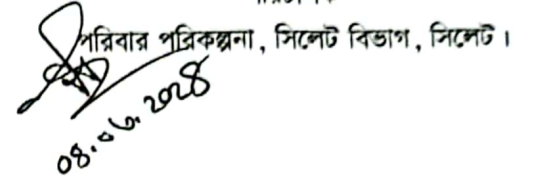 পরিবার পরিকল্পনা, সিলেট বিভাগ, সিলেট।
০৪.০৬.২০২৪